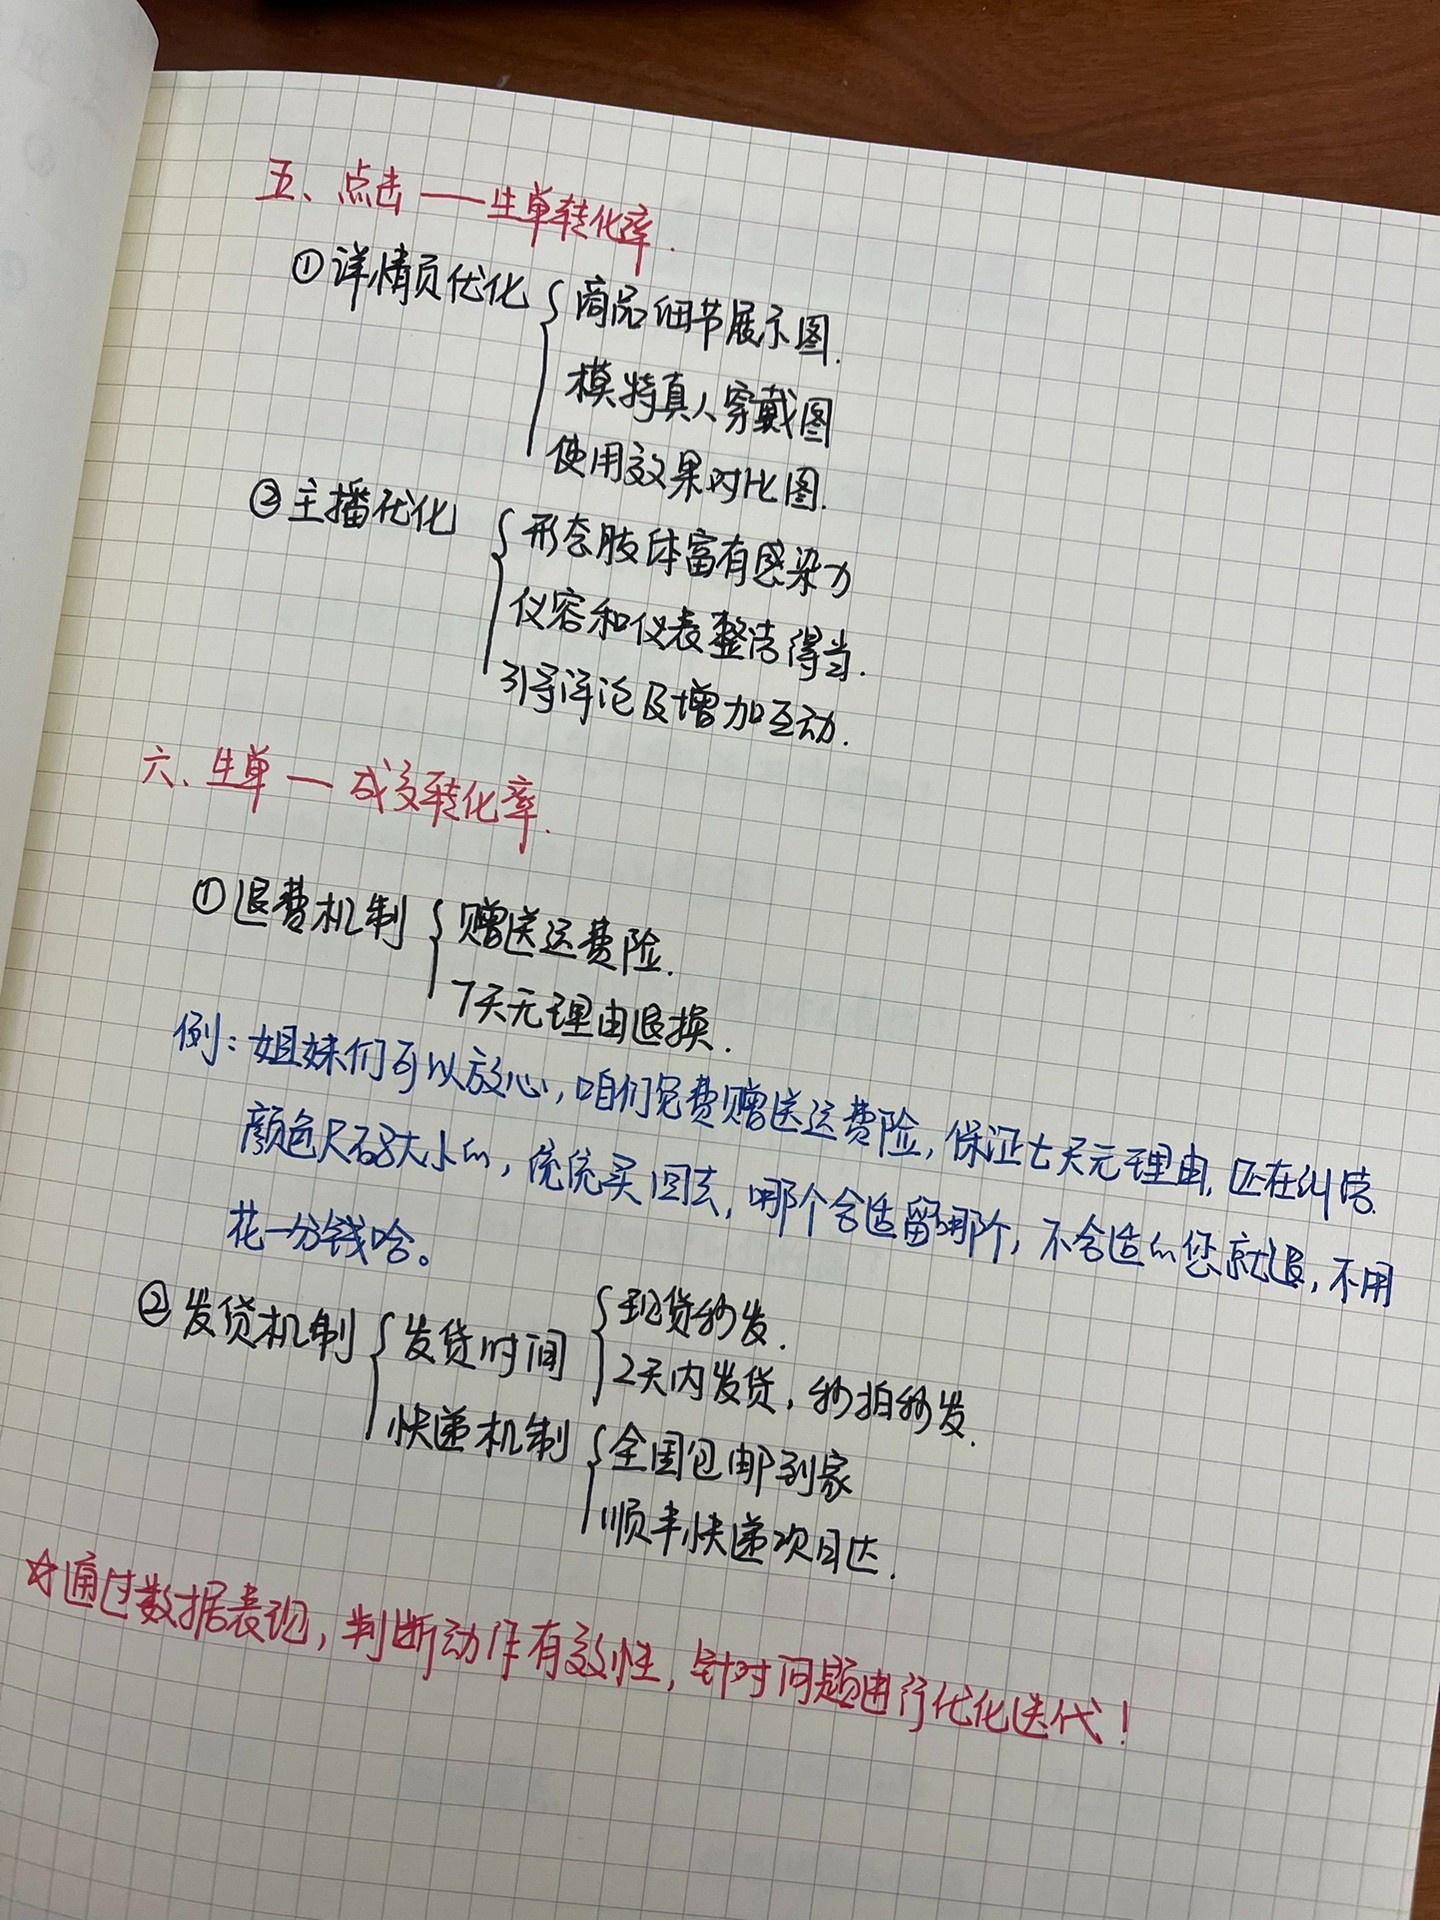 五、点击——生单转化率.
①详情页优化
商品细节展示图.
模特真人穿戴图
使用效果对比图.
②主播优化
形态肢体富有感染力
仪容和仪表整洁得当.
引导评论及增加互动.
六、生单—成交转化率.
①退费机制
赠送运费险.
7天无理由退换.
例：姐妹们可以放心，咱们免费赠送运费险，保证七天无理由，还在纠结
颜色尺码大小的，统统买回去，哪个合适留哪个，不合适的您就退，不用
花一分钱哈。
②发货机制
发货时间
现货秒发.
2天内发货，秒拍秒发.
快递机制
全国包邮到家
顺丰快递次日达.
☆通过数据表现，判断动作有效性，针对问题进行优化迭代！